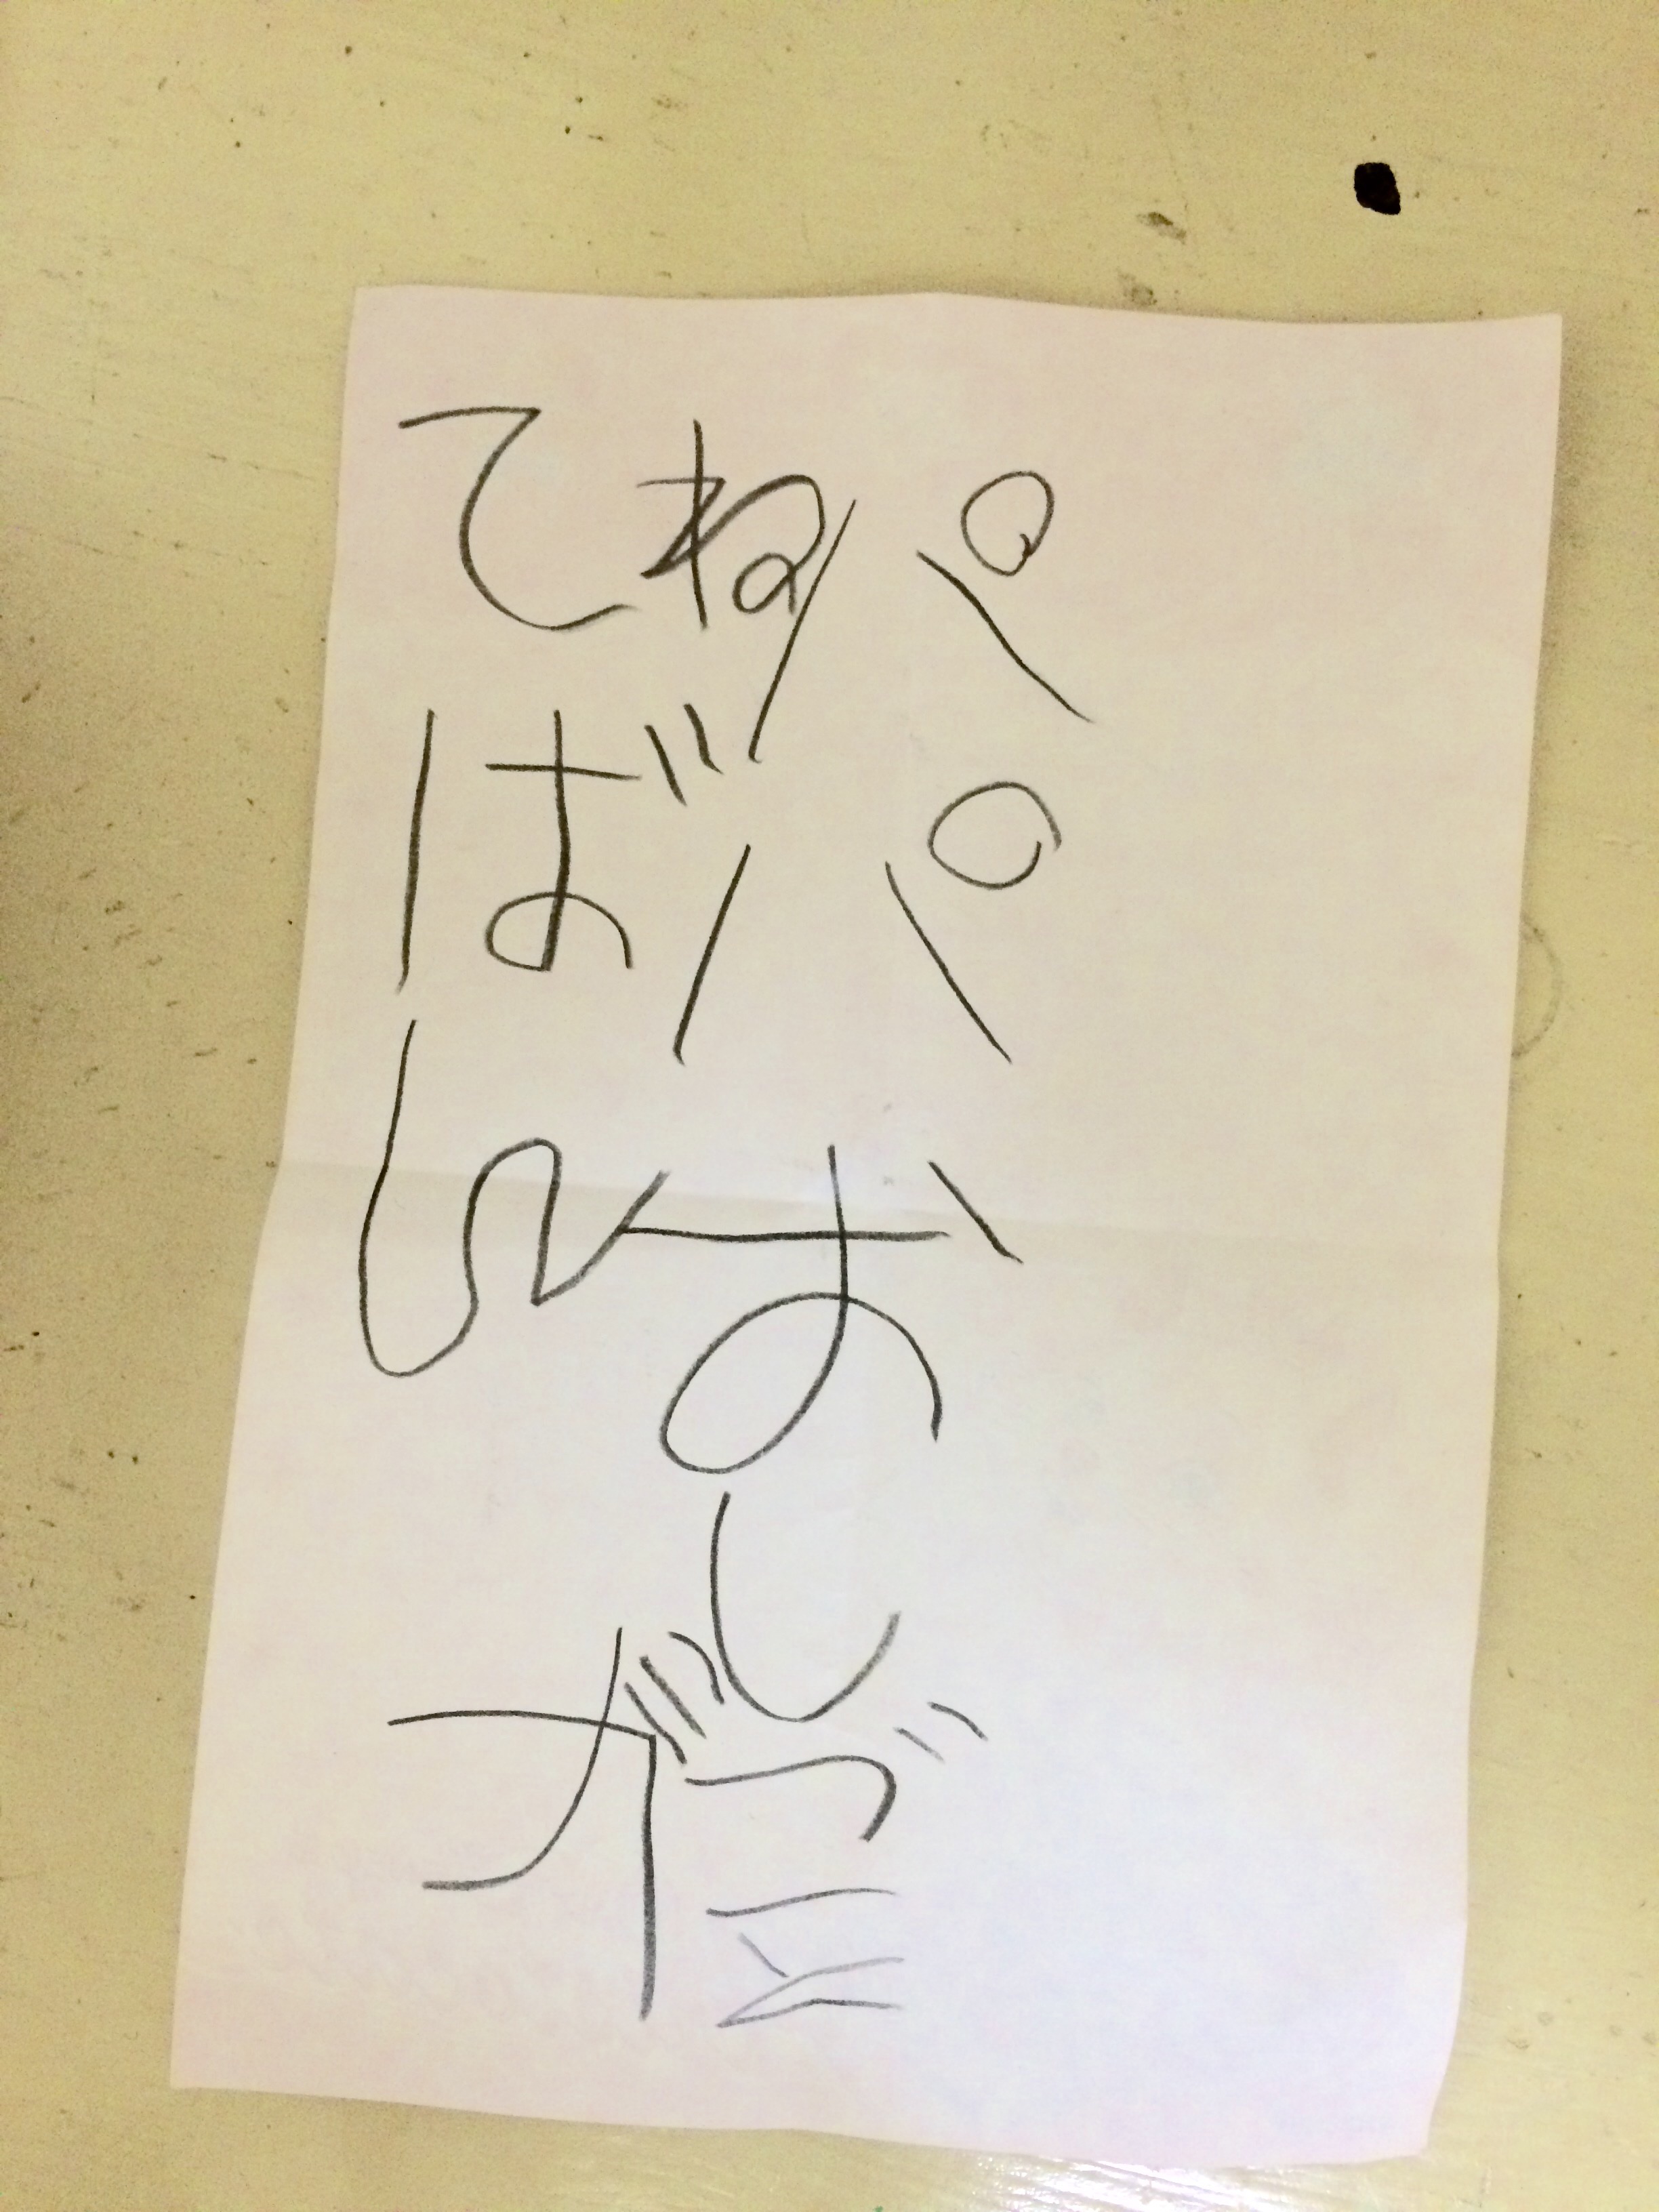 パパおしごと
がんばてね